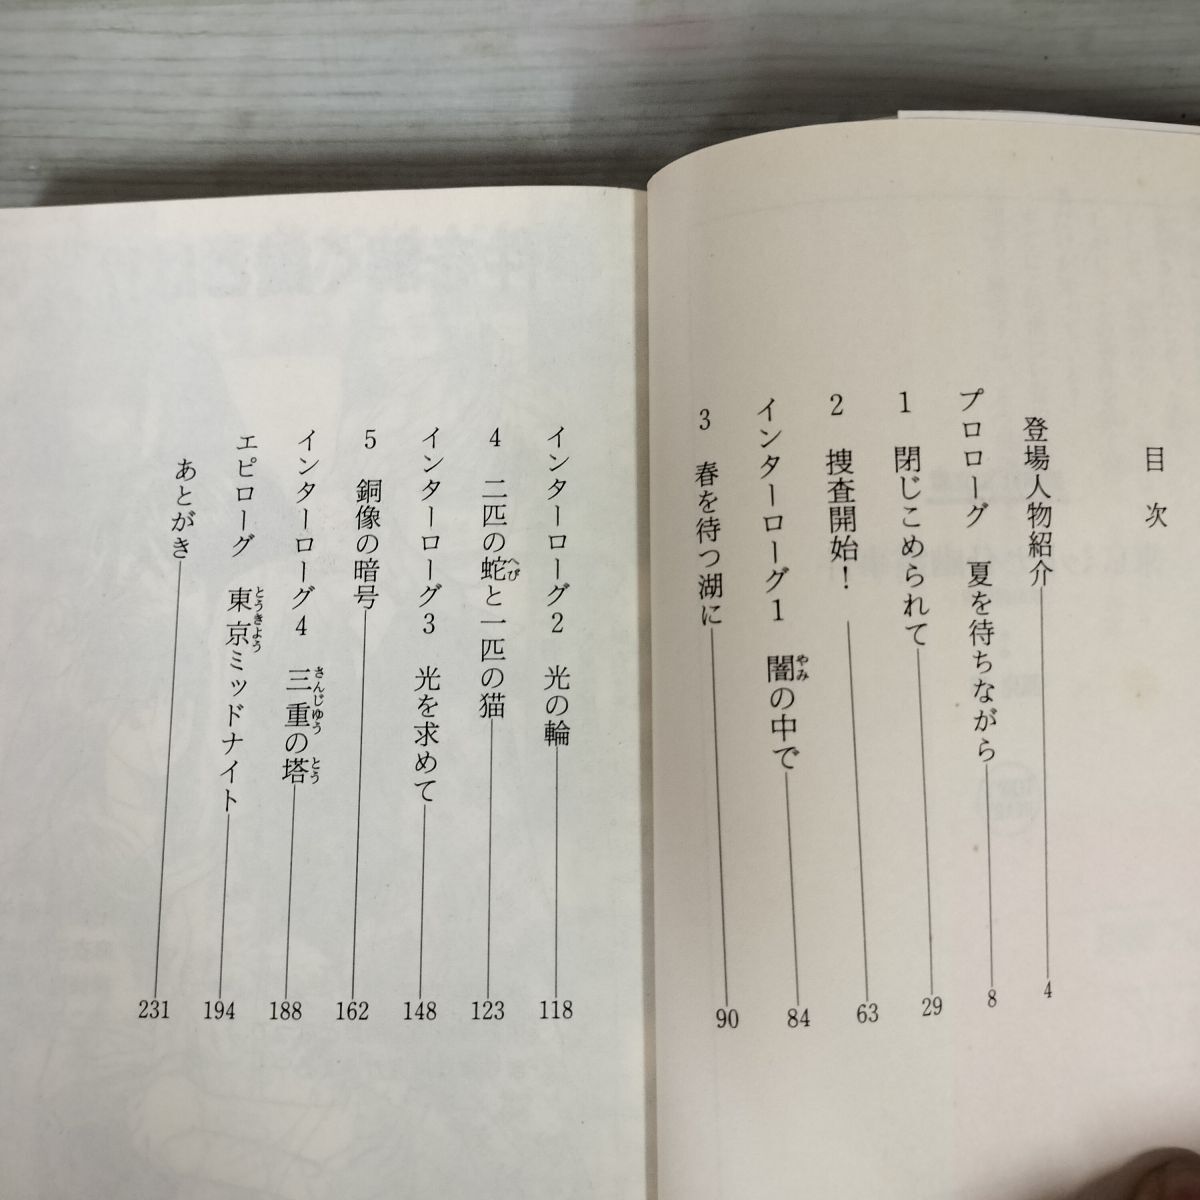 目次
登場人物紹介 4
プロローグ 夏を待ちながら 8
1 閉じこめられて 29
2 捜査開始！ 63
インターローグ1 闇の中で 84
やみ
3 春を待つ湖に 90
インターローグ2 光の輪 118
4 二匹の蛇と一匹の猫 123
へび
インターローグ3 光を求めて 148
5 銅像の暗号 162
インターローグ4 三重の塔 188
さんじゅう とう
エピローグ 東京ミッドナイト 194
とうきょう
あとがき 231